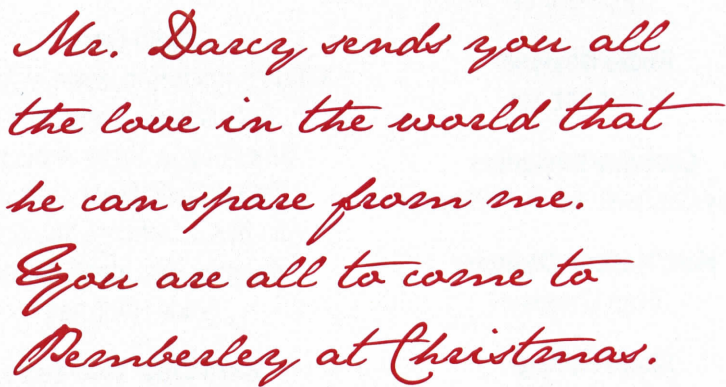 Mr. Darcy sends you all
the love in the world that
he can spare from me.
You are all to come to
Pemberley at Christmas.